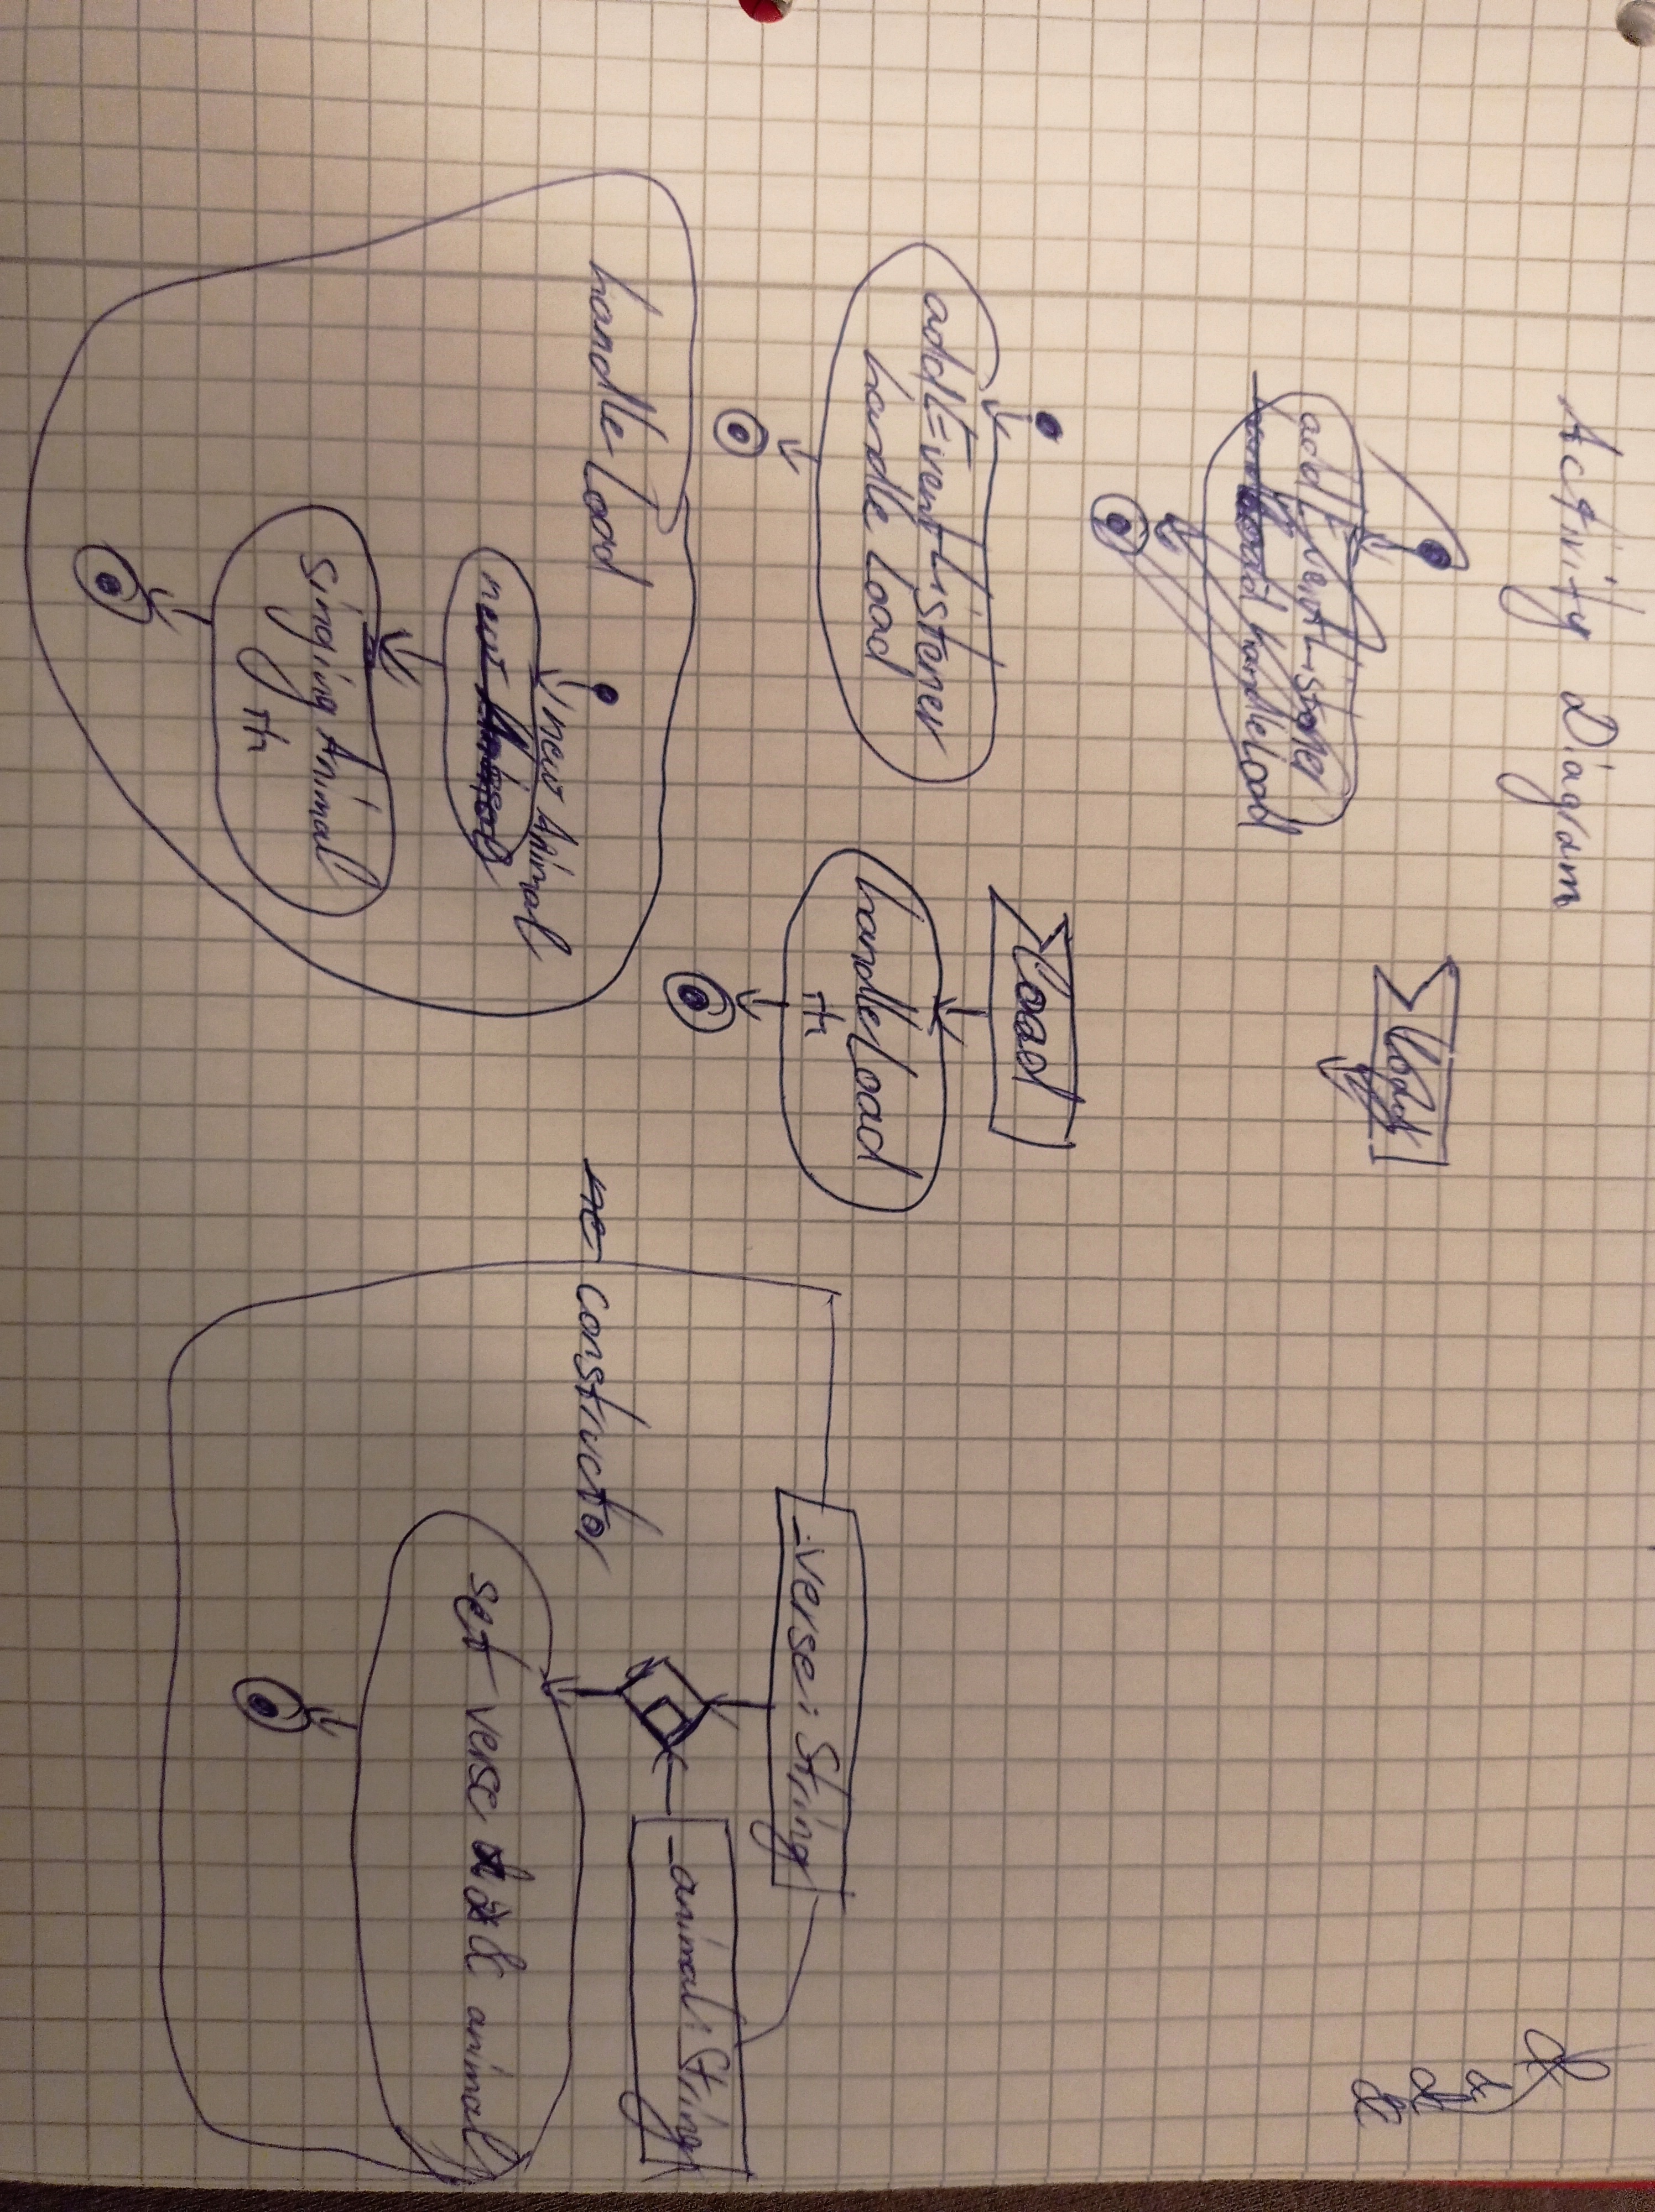 Activity Diagram
addEventListener
handleLoad
load
&
&
&
&
addEventListener
handle Load
load
handleLoad
handleLoad
new Animal
new
Singing Animal
constructor
_verse: String
_animal: String
set verse & animal